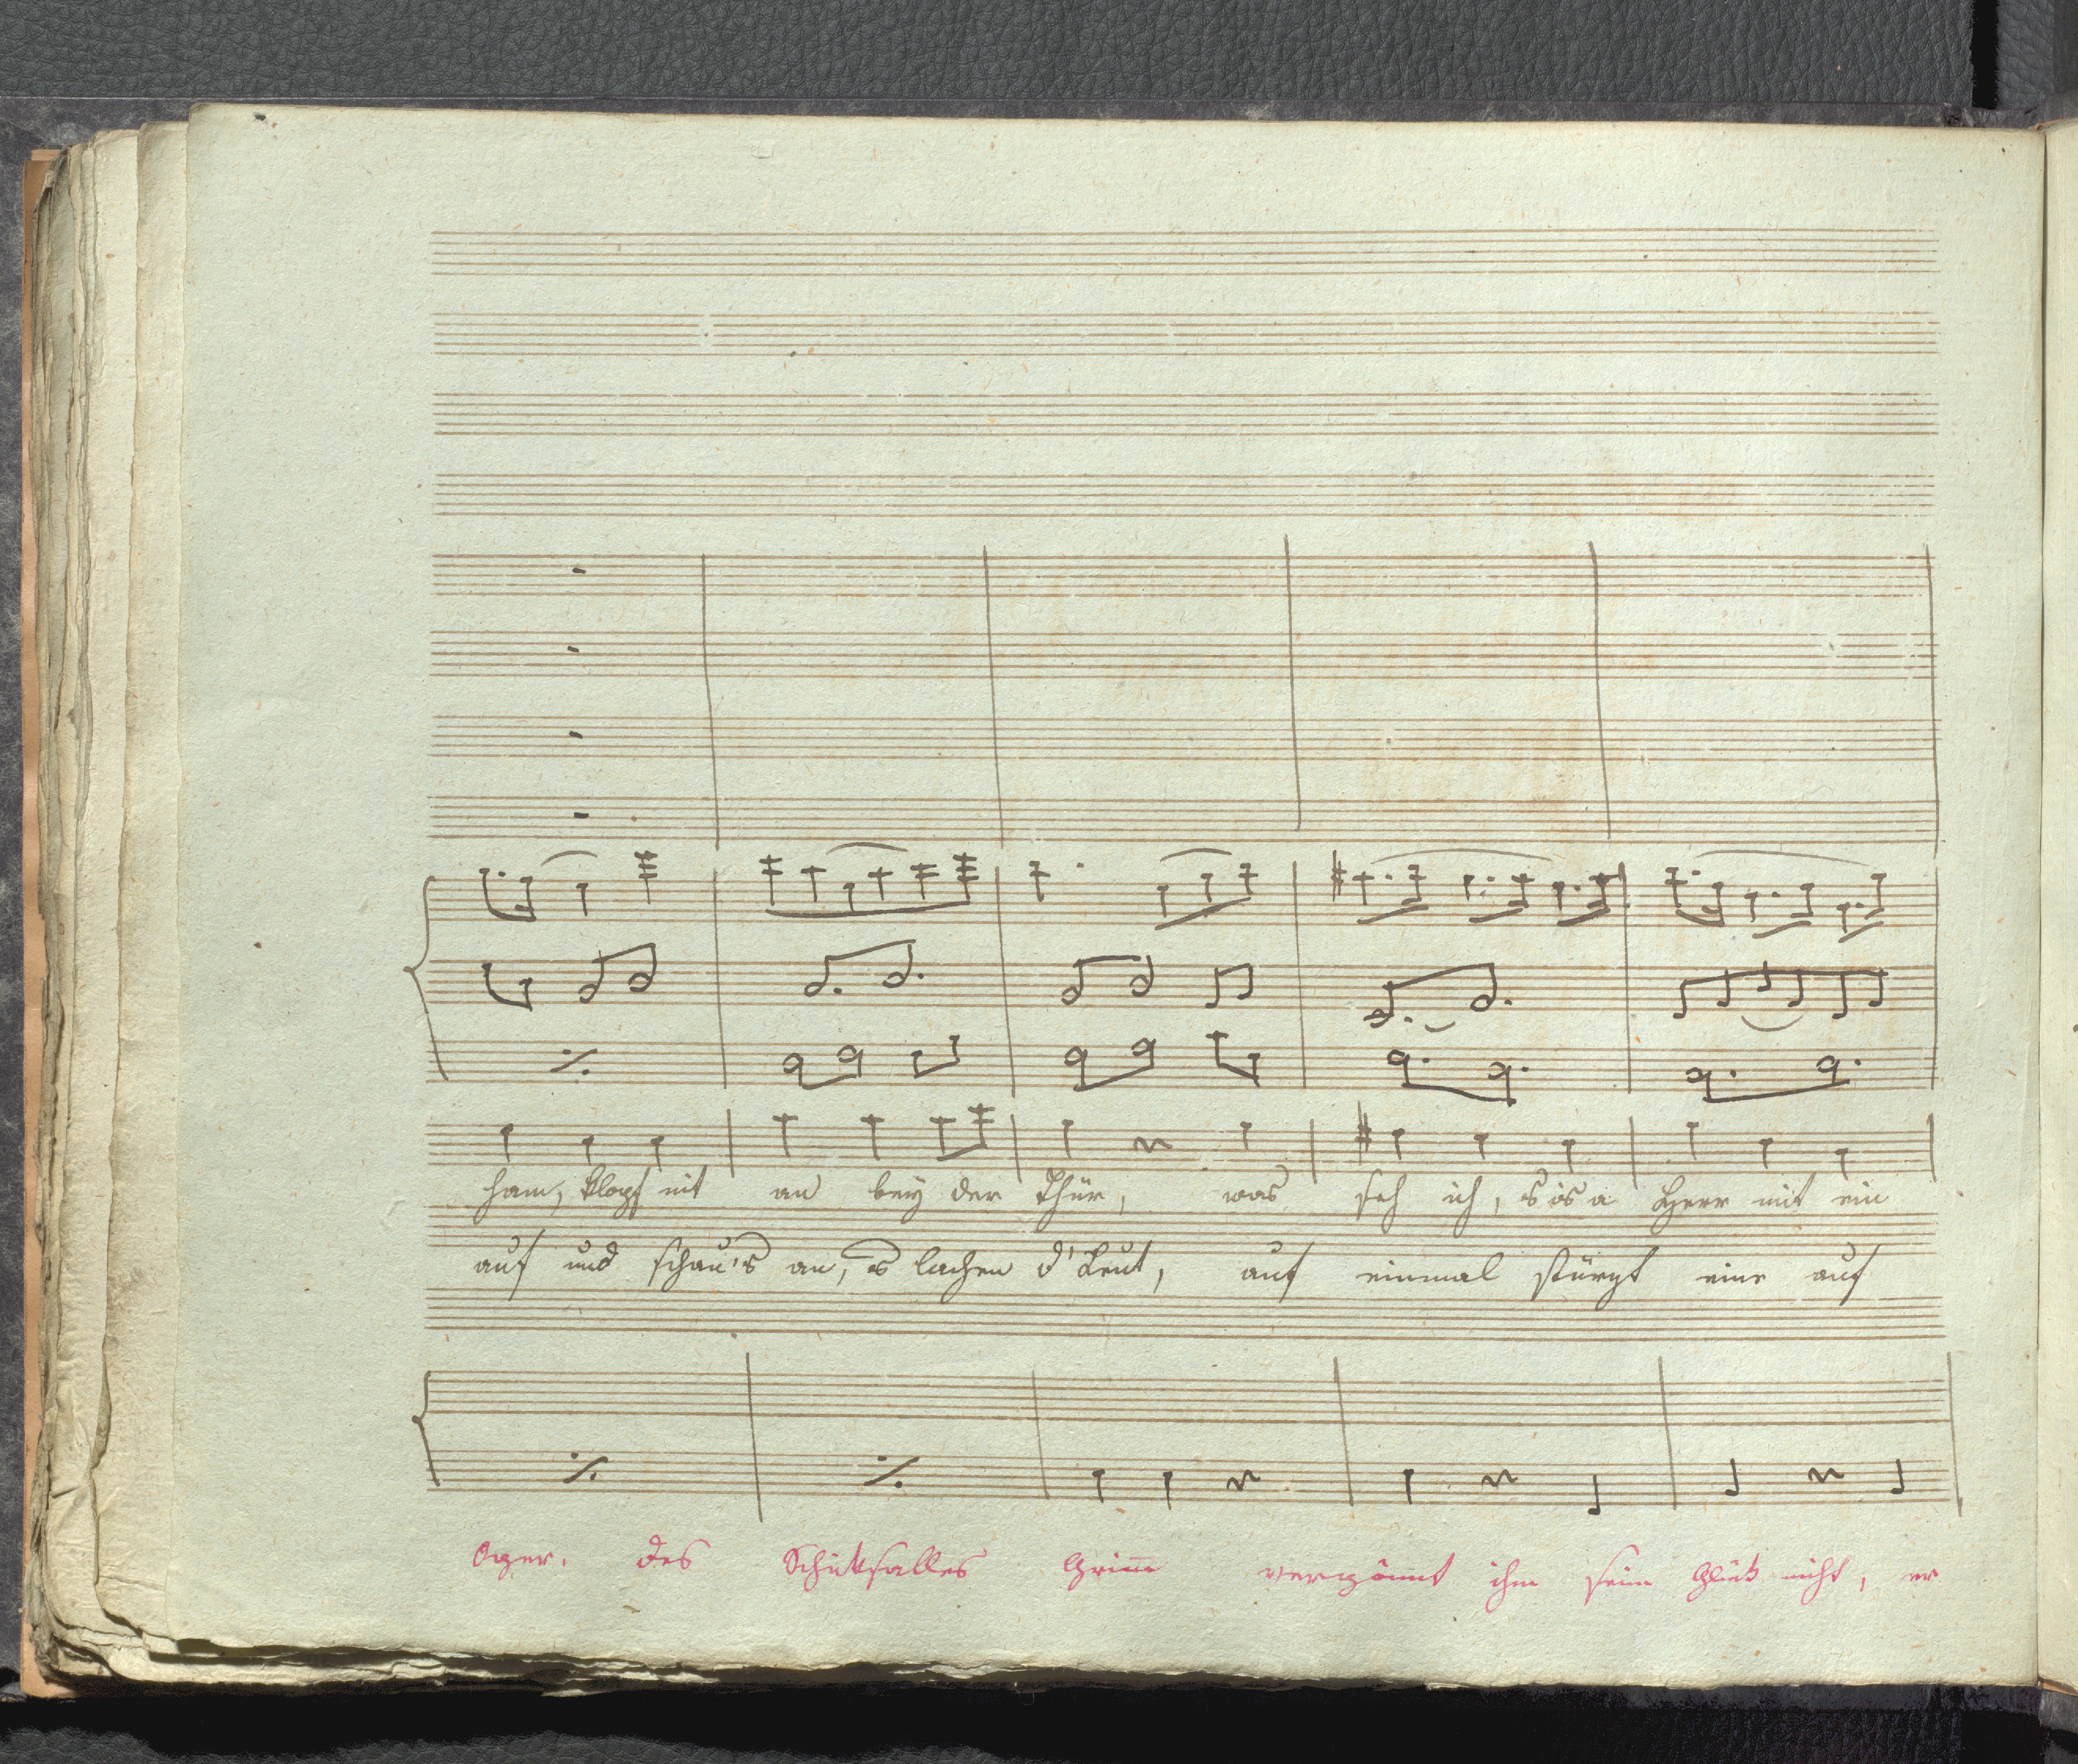 ham, klopf nit an bey der Thür, was seh ich, s'is a Herr mit ein
auf und schau's an, s lachen d'Leut, auf einmal stürzt eine auf
des Schicksalles Grimm vergönnt ihm sein Glück nicht, er